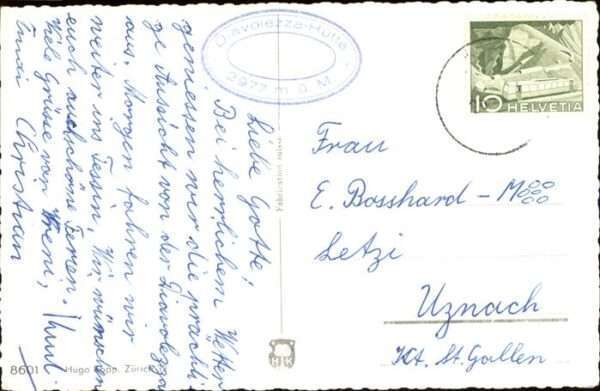 Diavolezza-Hütte
2977 m ü. M.
Liebe Gotte!
Bei herrlichem Wetter
geniessen wir die prachti-
ge Aussicht von der Diavolezza
aus. Morgen fahren wir
weiter ins Tessin. Wir wünschen
euch auch schöne Ferien.
Viele Grüsse von Vreni,
Christian
10 HELVETIA
Frau
E. Bosshard - Moos
Letzi
Uznach
Kt. St. Gallen
8601 Hugo Kopp, Zürich